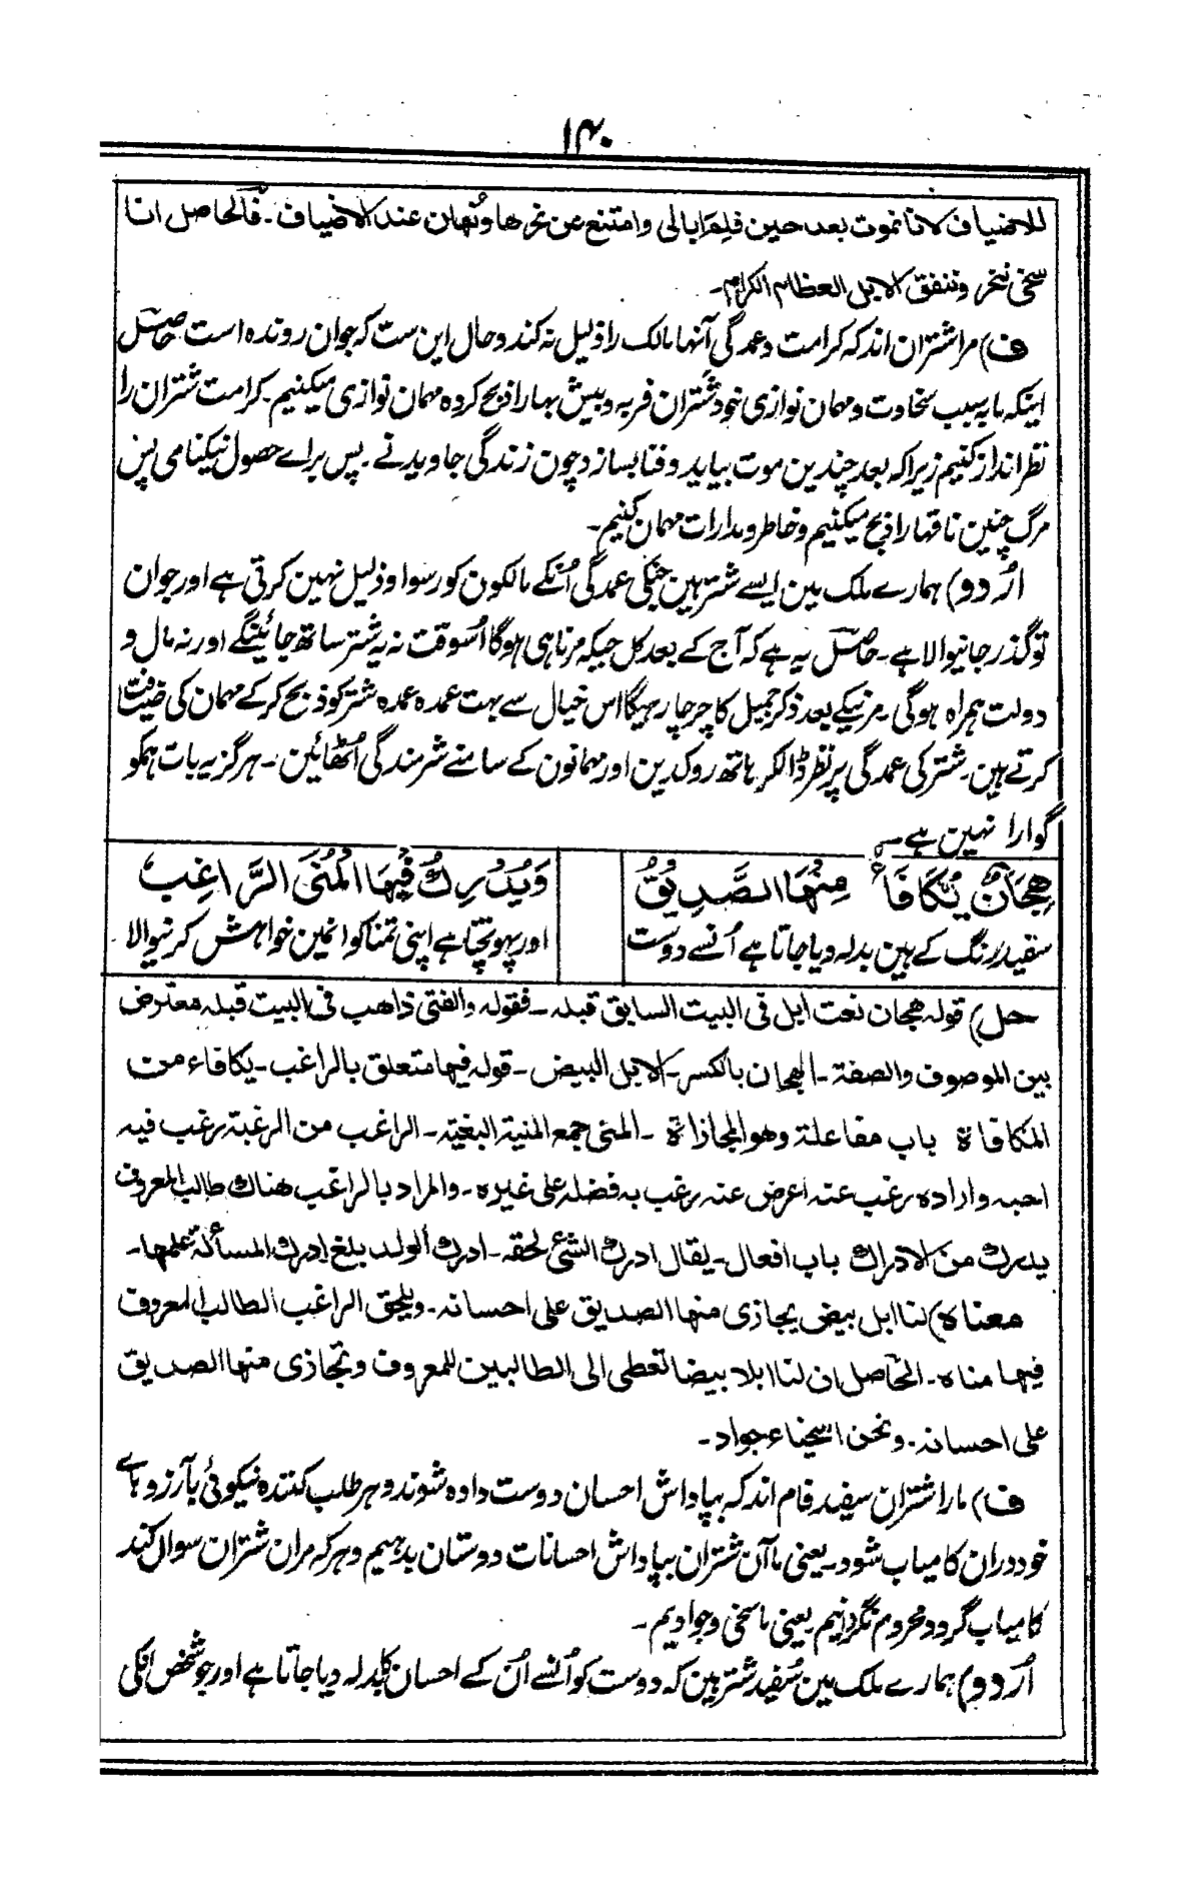 ۱۴۰
للاضیاف لانا نموت بعد حین فلم ابالی وامتنع من نحرھا ونُھان عند الاضیاف۔ فالحاصل انا
سخی ننحر وننفق الابل العظام الکرام۔
ف) مرا شتران اند کہ کرامت و عمدگی آنہا مالک را ذلیل نہ کند و حال این ست کہ جوان روندہ است حاصل
اینکہ ما بہ سبب سخاوت و مہمان نوازی خود شتران فربہ و بیش بہا را ذبح کردہ مہمان نوازی میکنیم۔ کرامت شتران را
نظر انداز کنیم زیرا کہ بعد چندین موت بیاید و فنا بسازد چون زندگی جاوید نے۔ پس براے حصول نیکنامی پس
مرگ چنین ناقہا را ذبح میکنیم و خاطر و مدارات مہمان کنیم۔
اُردو) ہمارے ملک مین ایسے شتر ہین جنکی عمدگی اُنکے مالکون کو رسوا و ذلیل نہین کرتی ہے اور جوان
تو گذر جانیوالا ہے۔ حاصل یہ ہے کہ آج کے بعد کل جبکہ مرنا ہی ہوگا اُسوقت نہ یہ شتر ساتھ جائینگے اور نہ مال و
دولت ہمراہ ہوگی۔ مرنیکے بعد ذکر جمیل کا چرچا رہیگا اس خیال سے بہت عمدہ عمدہ شتر کو ذبح کر کے مہمان کی ضیافت
کرتے ہین۔ شتر کی عمدگی پر نظر ڈالکر ہاتھ روک دین اور مہمانون کے سامنے شرمندگی اُٹھائین۔ ہرگز یہ بات ہمکو
گوارا نہین ہے۔
ھِجَانٌ یُّکَافَاُ مِنْھَا الصَّدِیْقُ وَیُدْرِكُ فِیْھَا الْمُنَی الرَّاغِبُ
سفید رنگ کے ہین بدلہ دیا جاتا ہے اُنسے دوست اور پہونچتا ہے اپنی تمنا کو انمین خواہش کرنیوالا
حل) قولہ ھجان نعت ابل فی البیت السابق قبلہ۔ فقولہ والفتی ذاھب فی البیت قبلہ معترض
بین الموصوف والصفة۔ الھجان بالکسر۔ الابل البیض۔ قولہ فیھا متعلق بالراغب۔ یکافاء من
المکافاة باب مفاعلة وھو المجازاة۔ المنی جمع المنیة البغیة۔ الراغب من الرغبة رغب فیہ
احبہ وارادہ رغب عنہ اعرض عنہ رغب بہ فضلہ علی غیرہ۔ والمراد بالراغب ھناك طالب المعروف
یدرك من الادراك باب افعال۔ یقال ادرك الشئ لحقہ۔ ادرك الولد بلغ ادرك المسألة علمھا۔
معناہ) لنا ابل بیض یجازی منھا الصدیق علی احسانہ۔ ویلحق الراغب الطالب المعروف
فیھا مناہ۔ الحاصل ان لنا ابلا بیضا تعطی الی الطالبین للمعروف وتجازی منھا الصدیق
علی احسانہ۔ ونحن اسخیاء جواد۔
ف) مارا شتران سفید فام اند کہ بپاداش احسان دوست دادہ شوند و ہر طلب کنندہ نیکوئی بآرزوہاے
خود دران کامیاب شود۔ یعنی ما آن شتران بپاداش احسانات دوستان بدہیم و ہر کہ مران شتران سوال کند
کامیاب گردد و محروم نگردانیم یعنی ما سخی و جوادیم۔
اُردو) ہمارے ملک مین سُفید شتر ہین کہ دوست کو اُنسے اُن کے احسان کا بدلہ دیا جاتا ہے اور جو شخص انکی